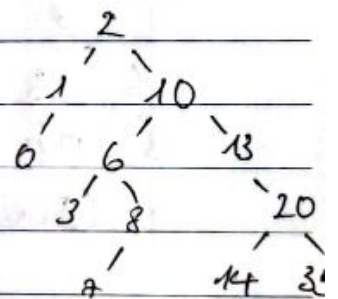 2
1 10
0 6 13
3 8 20
14